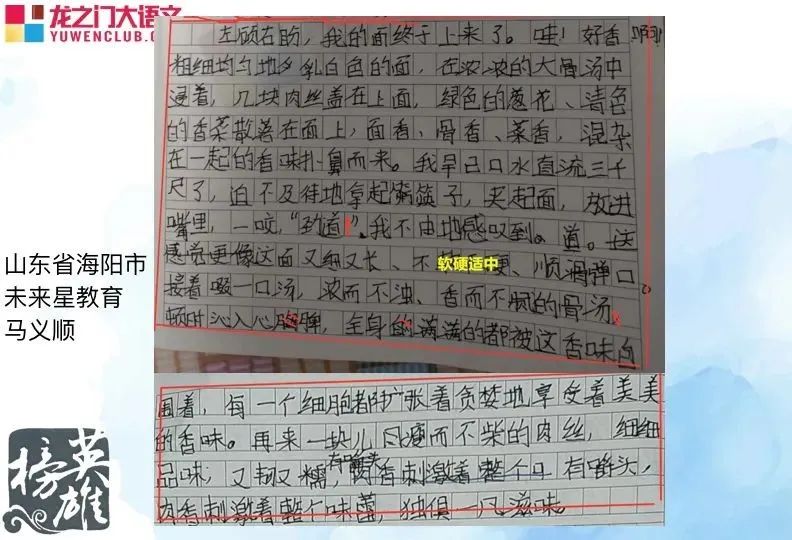 龙之门大语文
YUWENCLUB.COM
左顾右盼，我的面终于上来了。哇！好香啊！
粗细均匀地乳白色的面，在浓浓的大骨汤中
浸着，几块肉丝盖在上面，绿色的葱花、青色
的香菜散落在面上，面香、骨香、菜香，混杂
在一起的香味扑鼻而来。我早已口水直流三千
尺了，迫不及待地拿起筷子，夹起面，放进
嘴里，一咬，“劲道”，我不由地感叹到。道。这
感觉更像这面又细又长、不 软硬适中 、顺滑弹口。
接着啜一口汤，浓而不浊、香而不腻的骨汤，
顿时沁入心脾，全身的满满的都被这香味包
围着，每一个细胞都扩张着贪婪地享受着美美
的香味。再来一块儿瘦而不柴的肉丝，细细
品味，又韧又糯，肉香刺激着整个口 有嚼头，
肉香刺激着整个味蕾，独俱一凡滋味。
山东省海阳市
未来星教育
马义顺
英雄榜